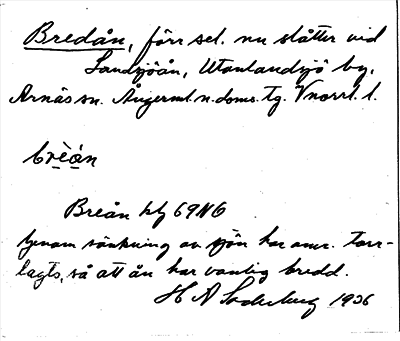 Bredån, förr sel. nu slåtter vid
Landsjöån, Utanlandsjö by,
Arnäs sn. Ångerml. n. doms. tg. Vnorrl. l.
brèån
Breån blg 69 NG
Genom sänkning av sjön har anr. torr-
lagts, så att ån har vanlig bredd.
H A Söderberg 1936